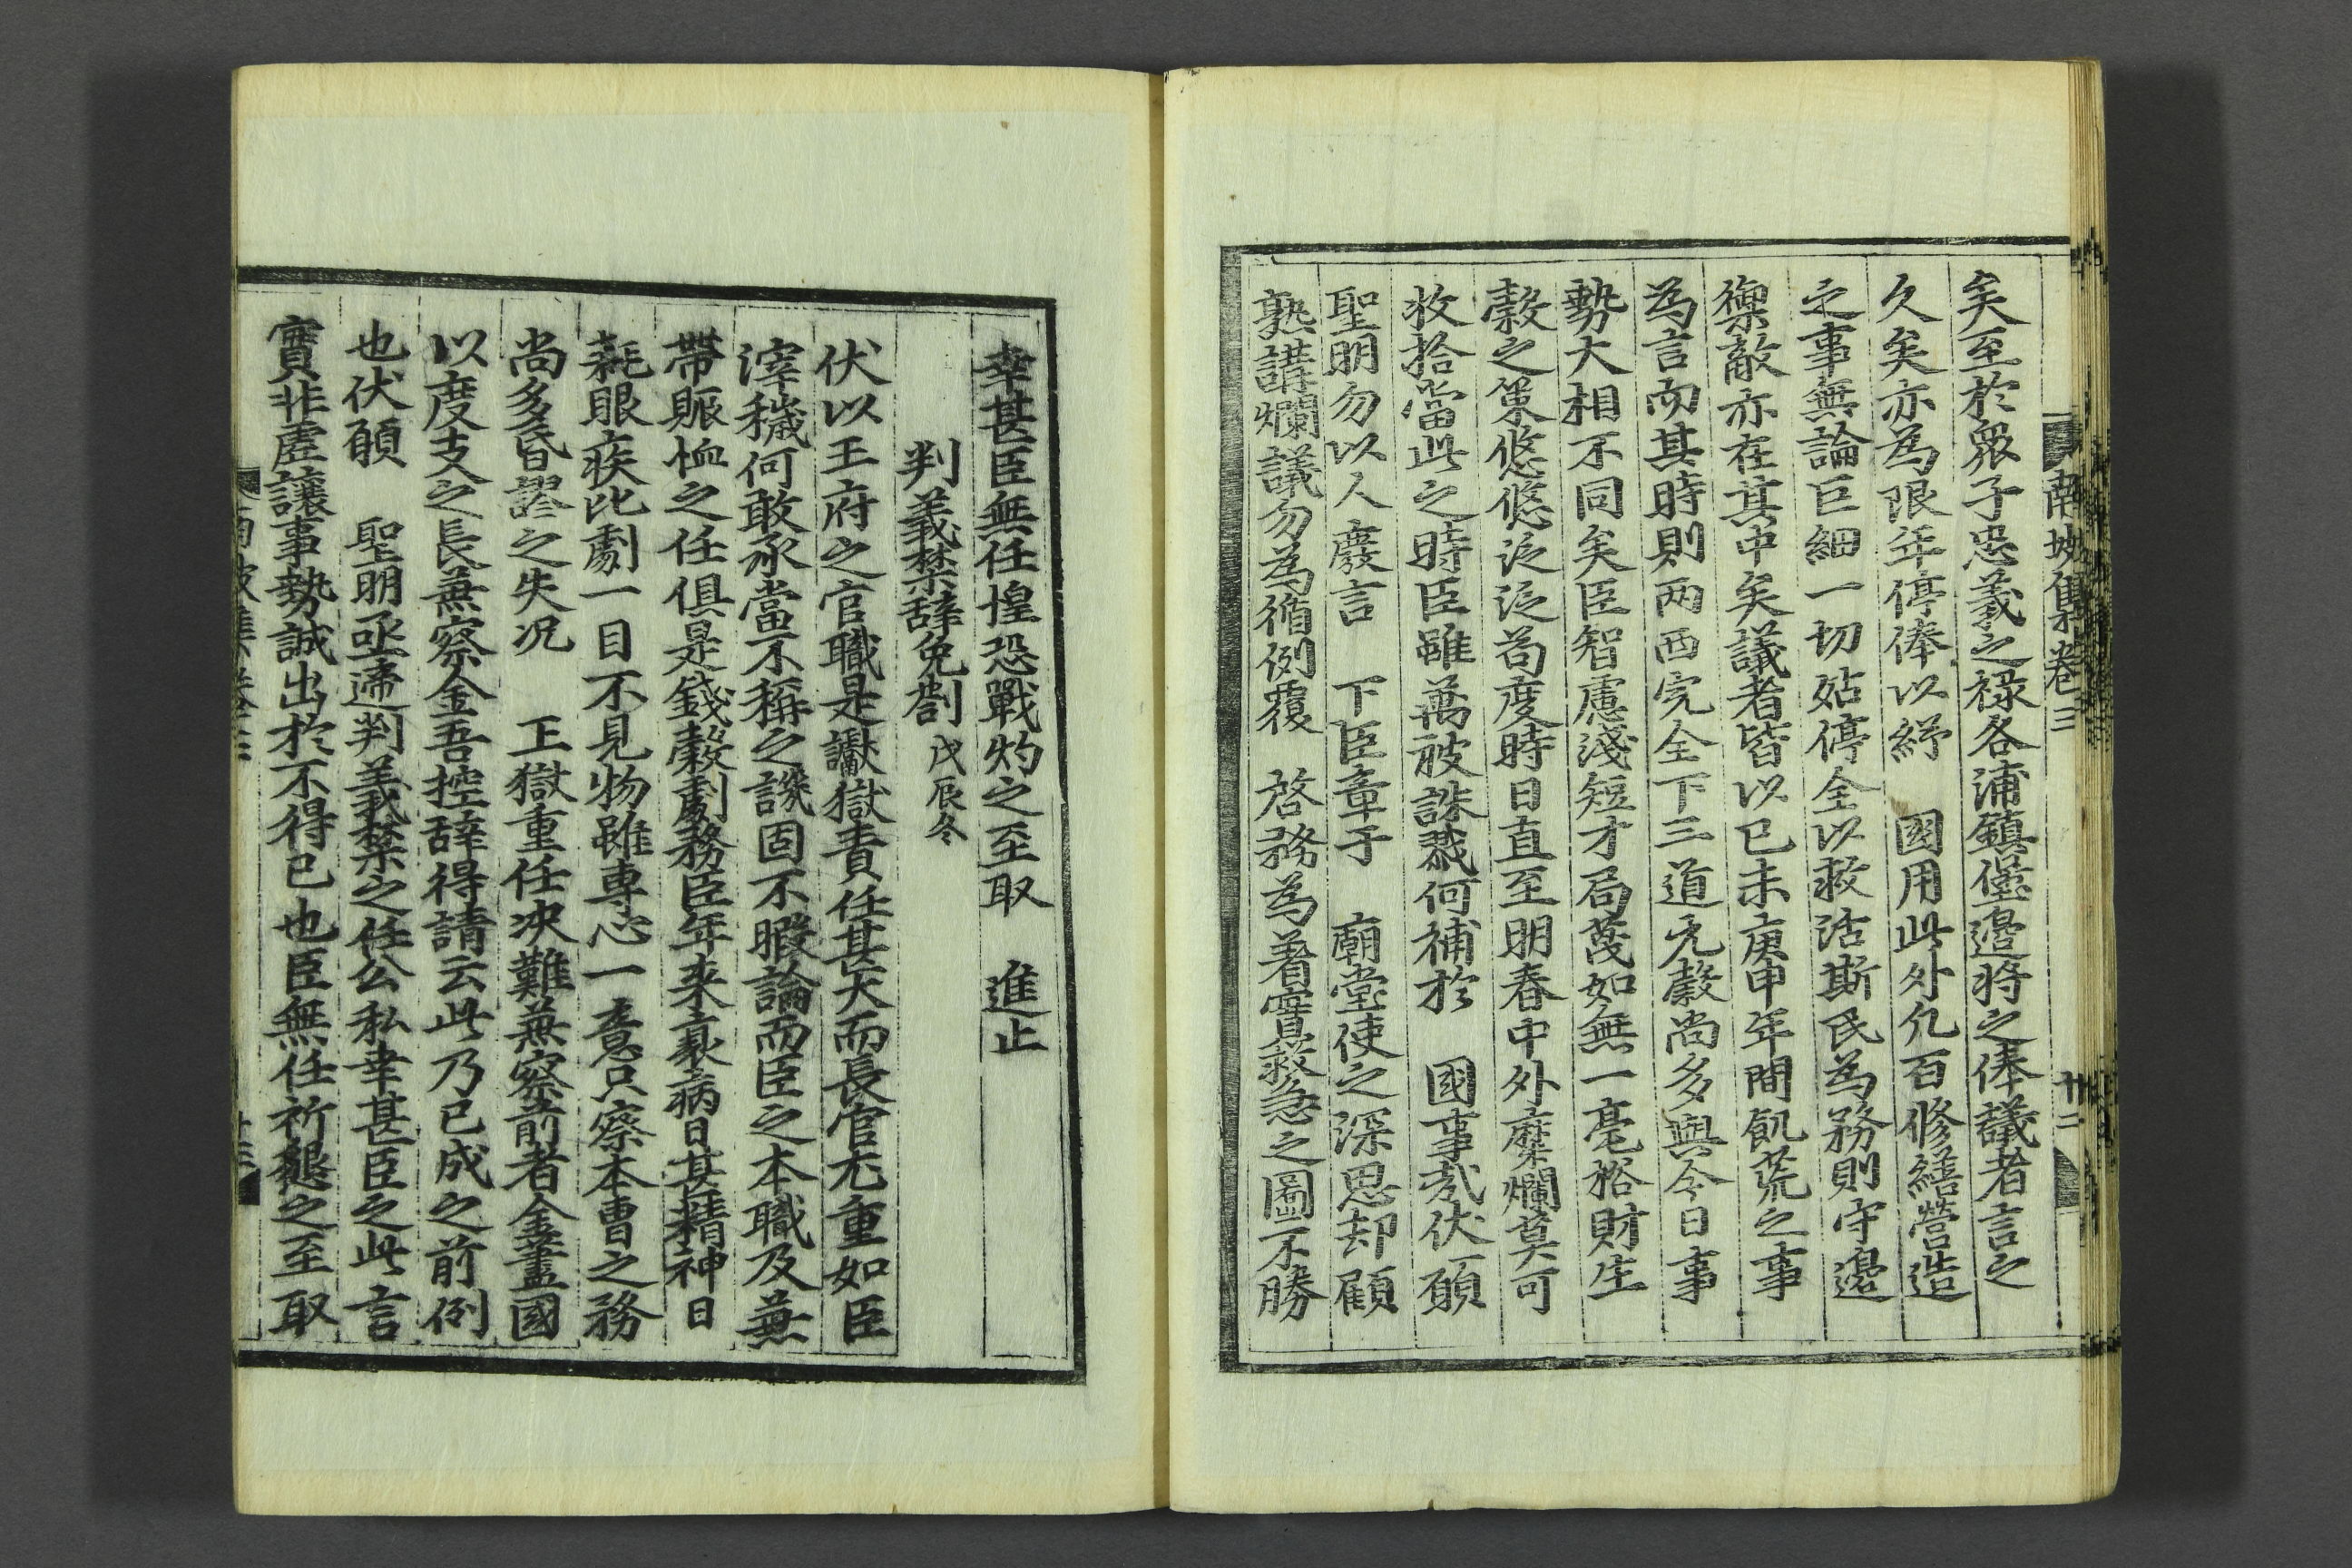 南坡集卷三
十二
矣至於眾子忠義之祿各浦鎮堡邊將之俸議者言之
久矣亦為限年停俸以紓 國用此外凡百修繕營造
之事無論巨細一切姑停全以救活斯民為務則守邊
禦敵亦在其中矣議者皆以已未庚申年間飢荒之事
為言而其時則兩西完全下三道元穀尚多與今日事
勢大相不同矣臣智慮淺短才局蔑如無一毫裕財生
穀之策悠悠泛泛苟度時日直至明春中外糜爛莫可
收拾當此之時臣雖萬被誅戮何補於 國事哉伏願
聖明勿以人廢言 下臣章于 廟堂使之深思却顧
熟講爛議勿為循例覆 啓務為着實救急之圖不勝
幸甚臣無任惶恐戰灼之至取 進止
判義禁辭免劄 戊辰冬
伏以王府之官職是讞獄責任甚大而長官尤重如臣
滓穢何敢承當不稱之譏固不暇論而臣之本職及兼
帶賑恤之任俱是錢穀劇務臣年來衰病日甚精神日
耗眼疾比劇一目不見物雖專心一意只察本曹之務
尚多昏謬之失况 王獄重任决難兼察前者金藎國
以度支之長兼察金吾控辭得請云此乃已成之前例
也伏願 聖明亟遞判義禁之任公私幸甚臣之此言
實非虛讓事勢誠出於不得已也臣無任祈懇之至取